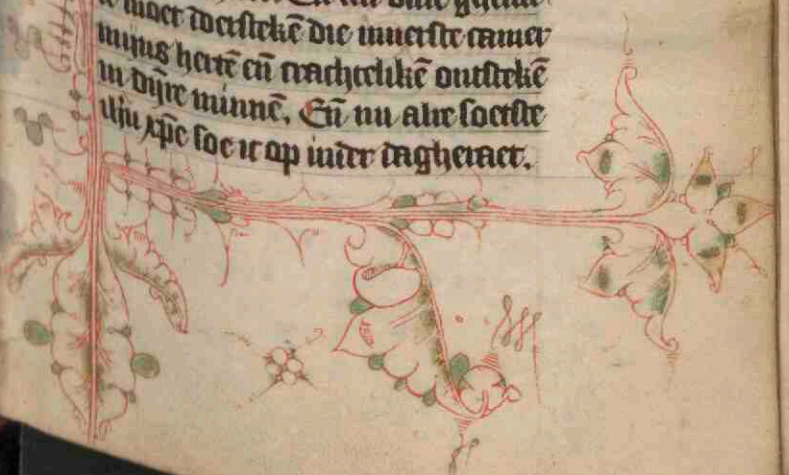 moet doerstekē die innerste camer
mijns hertē eñ crachtelikē ontstekē
in dijre minnē. Eñ nu alre soetste
ihu xp̄e soe ic op inder dagheraet.